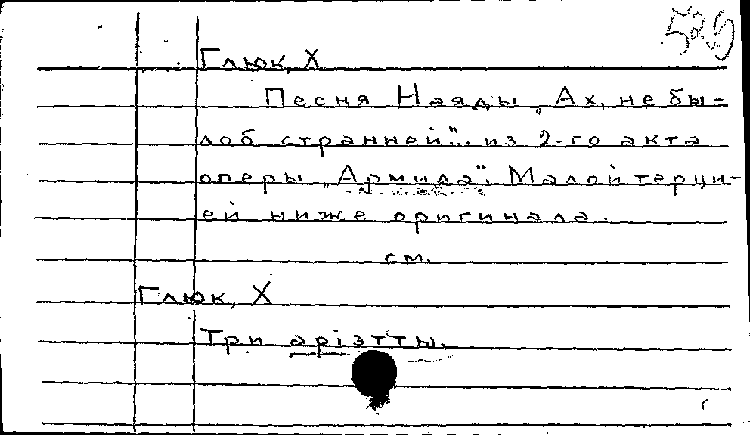 529
Глюк, Х
Песня Наяды „Ах, не бы=
лоб странней".. из 2-го акта
оперы „Армида". Малой терци-
ей ниже оригинала.
см.
Глюк, Х
Три аріэтты.